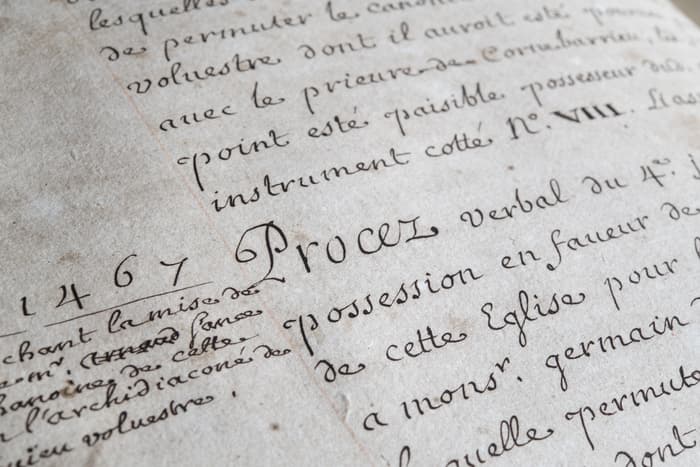 lesquelles
de permuter le canon
voluestre dont il auroit esté pourv
avec le prieure de Cornebarrieu, les
point esté paisible possesseur dud.
instrument cotté N°. VIII. Lias
1467
chant la mise de
mr. fance
hanoine de cette
l'archidiaconé de
rieu voluestre.
Procez verbal du 4e.
possession en faueur de
de cette Eglise pour
a monsr. germain
laquelle permuta
dont